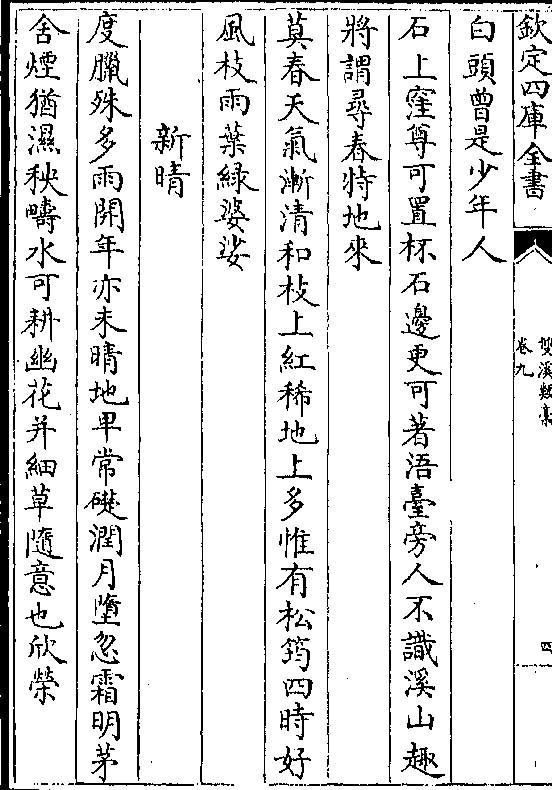 欽定四庫全書
雙溪類藁
卷九
四
白頭曾是少年人
石上窪尊可置杯石邊更可著浯臺旁人不識溪山趣
將謂尋春特地來
莫春天氣漸清和枝上紅稀地上多惟有松筠四時好
風枝雨葉緑婆娑
新晴
度臘殊多雨開年亦未晴地卑常礎潤月墮忽霜明茅
舍煙猶濕秧疇水可耕幽花并細草隨意也欣榮